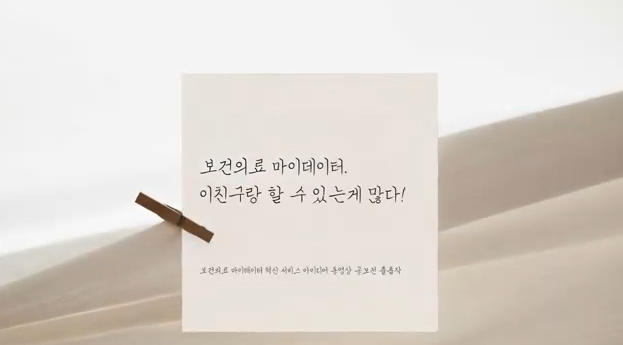 보건의료 마이데이터.
이친구랑 할 수 있는게 많다!
보건의료 마이데이터 혁신 서비스 아이디어 동영상 공모전 출품작